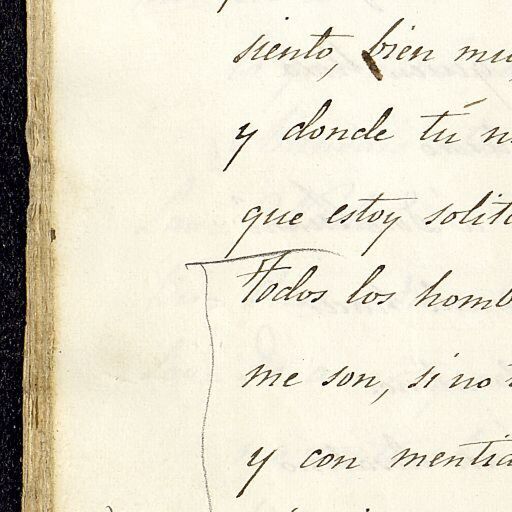 siento, bien mu
y donde tú n
que estoy solit
Todos los homb
me son, si no
y con mentid